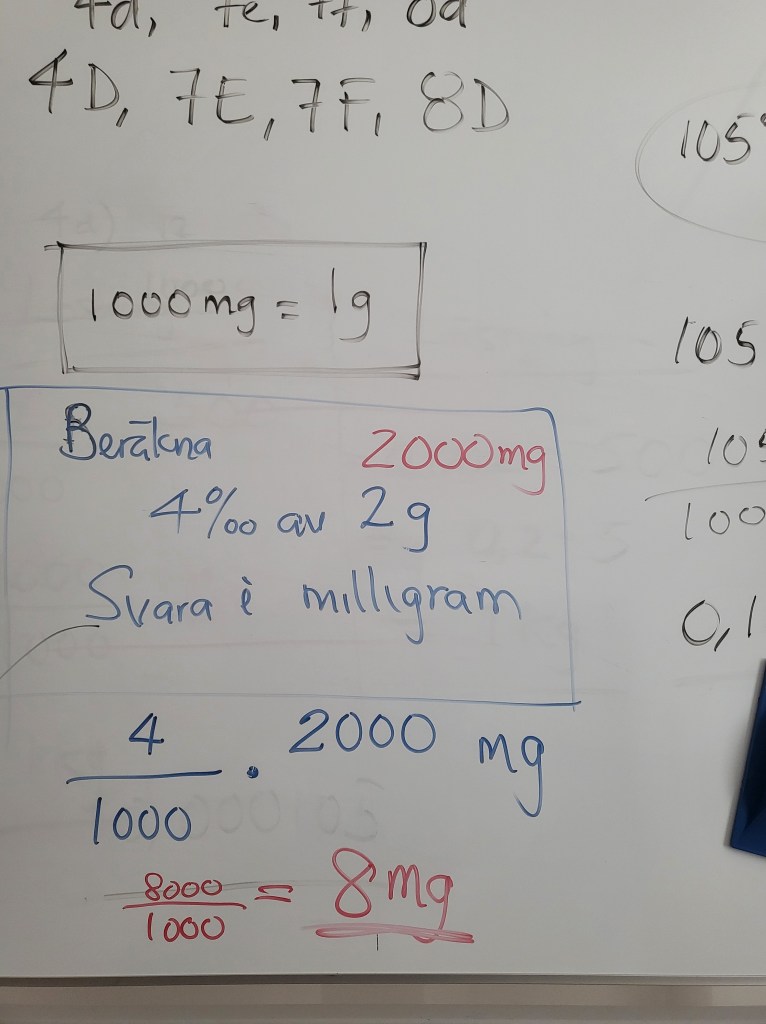 4d, 7e, 7f, 8d
4D, 7E, 7F, 8D
1000 mg = 1g
Beräkna 2000mg
4‰ av 2g
Svara i milligram
4/1000 · 2000 mg
8000/1000 = 8 mg
105
105
100
0,1